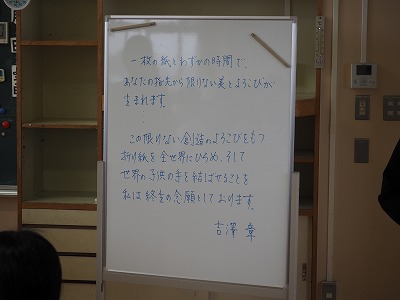 一枚の紙とわずかの時間で、
あなたの指先から限りない美とよろこびが
生まれます。
この限りない創造のよろこびをもつ
折り紙を全世界にひろめ、そして
世界の子供の手を結ばせることを
私は終生の念願としております。
吉澤 章